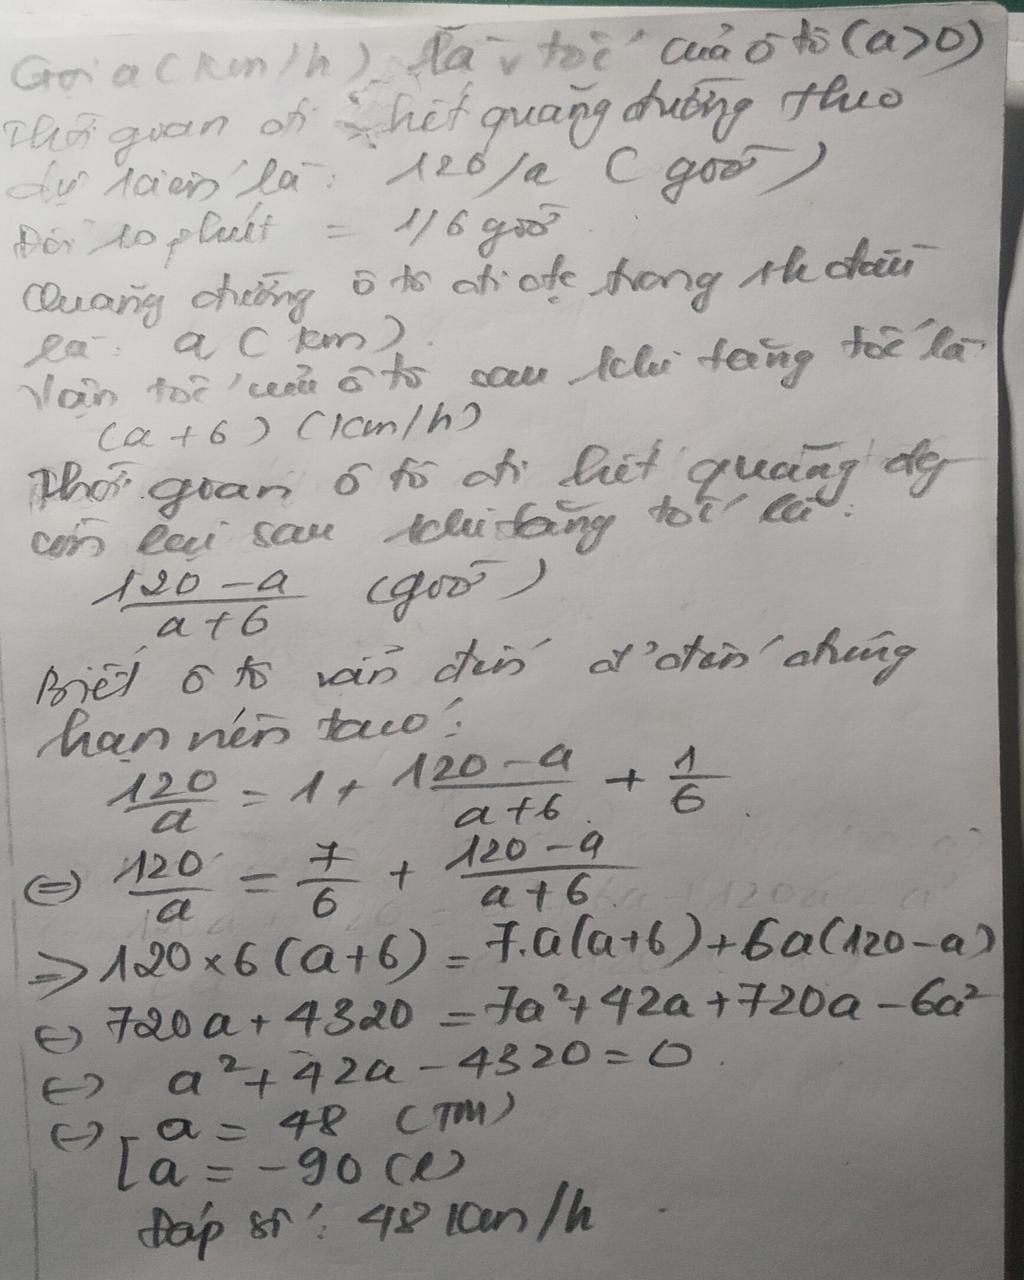 Gọi a (km/h) là v tốc của ô tô (a>0)
Thời gian đi hết quãng đường theo
dự kiến là: 120/a (giờ)
Đổi 10 phút = 1/6 giờ
Quãng đường ô tô đi đc trong 1h đầu
là: a (km)
Vận tốc của ô tô sau khi tăng tốc là
(a+6) (km/h)
Thời gian ô tô đi hết quãng đg
còn lại sau khi tăng tốc là:
\frac{120-a}{a+6} (giờ)
Biết ô tô vẫn đến đúng
hạn nên ta có:
\frac{120}{a} = 1 + \frac{120-a}{a+6} + \frac{1}{6}
⇔ \frac{120}{a} = \frac{7}{6} + \frac{120-a}{a+6}
⇒ 120×6(a+6) = 7.a(a+6)+6a(120-a)
⇔ 720a+4320 = 7a²+42a+720a-6a²
⇔ a²+42a-4320=0
⇔ [ a = 48 (TM)
[ a = -90 (l)
Đáp số: 48 km/h